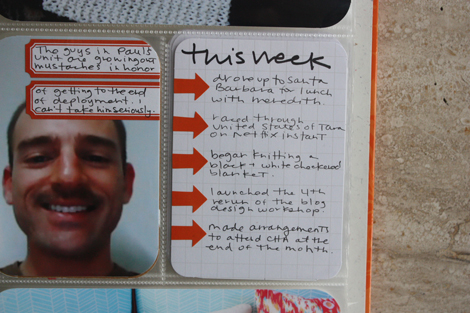 The guys in Paul's
unit are growing out
mustaches in honor
of getting to the end
of deployment. I
can't take him seriously.
this week
drove up to Santa
Barbara to lunch
with meredith.
raced through
United States of Tara
on netflix instant
began knitting a
black + white checkered
blanket.
launched the 4th
rerun of the blog
design workshop.
made arrangements
to attend CHA at the
end of the month.